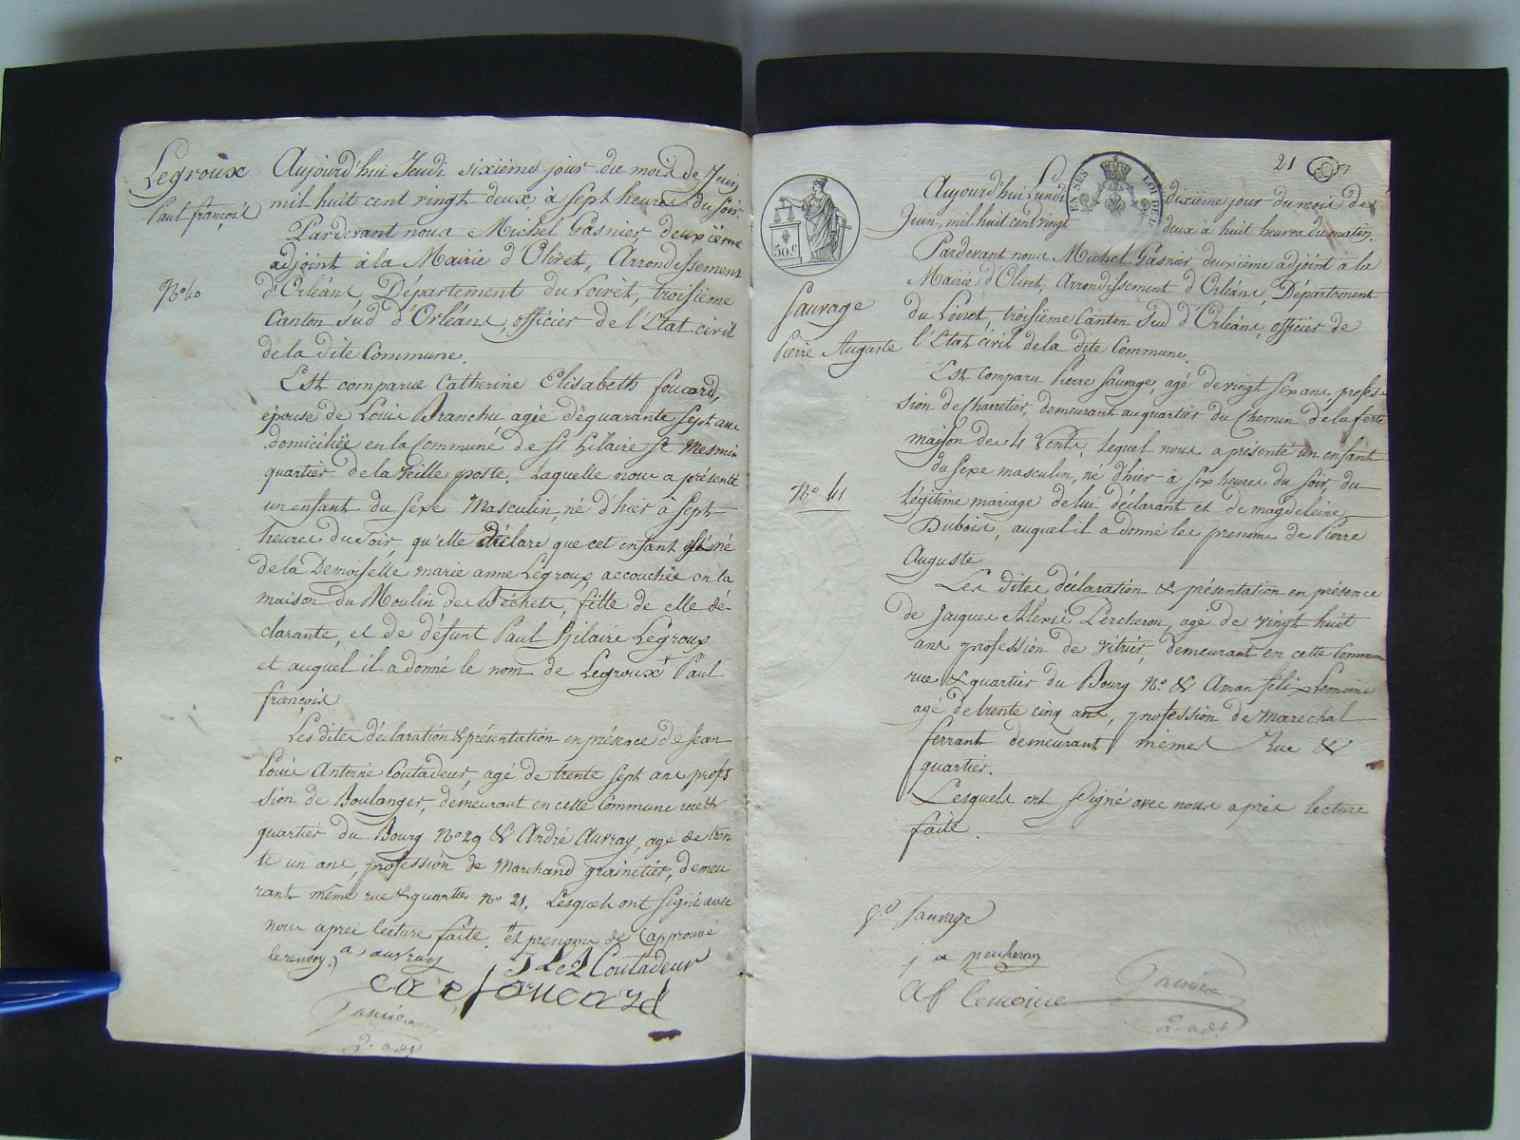 Legroux
Paul françois
No 40
Aujourd'hui Jeudi sixième jour du mois de Juin
mil huit cent vingt deux à sept heures du soir
Pardevant nous Michel Gasnier deuxième
adjoint à la Mairie d'Olivet, Arrondissement
d'Orléans, Département du Loiret, troisième
Canton sud d'Orléans, officier de l'Etat civil
de la dite Commune.
Est comparue Catherine Elisabeth foucard,
épouse de Louis Branchu agée de quarante sept ans
domiciliée en la Commune de St hilaire St Mesmin
quartier de la Vieille poste. Laquelle nous a présenté
un enfant du sexe Masculin, né d'hier à sept
heures du soir, qu'elle déclare que cet enfant est né
de la Demoiselle marie anne Legroux, accouchée en la
maison du Moulin des Béchets, fille de elle dé-
clarante, et de défunt Paul Hilaire Legroux
et auquel il a donné le nom de Legroux + Paul
françois
Les dites déclaration & présentation en présence de Jean
Louis Antoine Coutadeur, agé de trente sept ans profes
sion de Boulanger, demeurant en cette Commune rue &
quartier du Bourg No 29 & André Auvray, agé de tren
te un ans, profession de Marchand grainetier, demeu
rant même rue & quartier No 21. Lesquels ont signé avec
nous après lecture faite. + et prenoms de (approuvé
le renvoy.) a auvray
J L A Coutadeur
C e foucard
Gasnier
2e adjt
21
50 c
Sauvage
Pierre Auguste
No 41
Aujourd'hui Lundi dixième jour du mois de
Juin, mil huit cent vingt deux à huit heures du matin.
Pardevant nous Michel Gasnier deuxième adjoint à la
Mairie d'Olivet, Arrondissement d'Orléans, Département
du Loiret, troisième Canton Sud d'Orléans, officier de
l'Etat civil de la dite Commune.
Est Comparu Pierre Sauvage, agé de vingt six ans, profes-
sion de Charretier, demeurant au quartier du Chemin de la ferté
maison des 4 Vents, lequel nous a présenté un enfant
du sexe masculin, né d'hier à six heures du soir, du
légitime mariage de lui déclarant et de magdeleine
Dubois, auquel il a donné les prenoms de Pierre
Auguste
Les dites déclaration & présentation en présence
de Jacques Alexis Percheron, agé de vingt huit
ans profession de vitrier, demeurant en cette Commune
rue & quartier du Bourg No & Aman felix Lemoine
agé de trente cinq ans, profession de Marechal
ferrant demeurant même Rue &
quartier.
Lesquels ont signé avec nous après lecture
faite.
Sauvage
j a percheron
A f lemoine
Gasnier
2e adjt